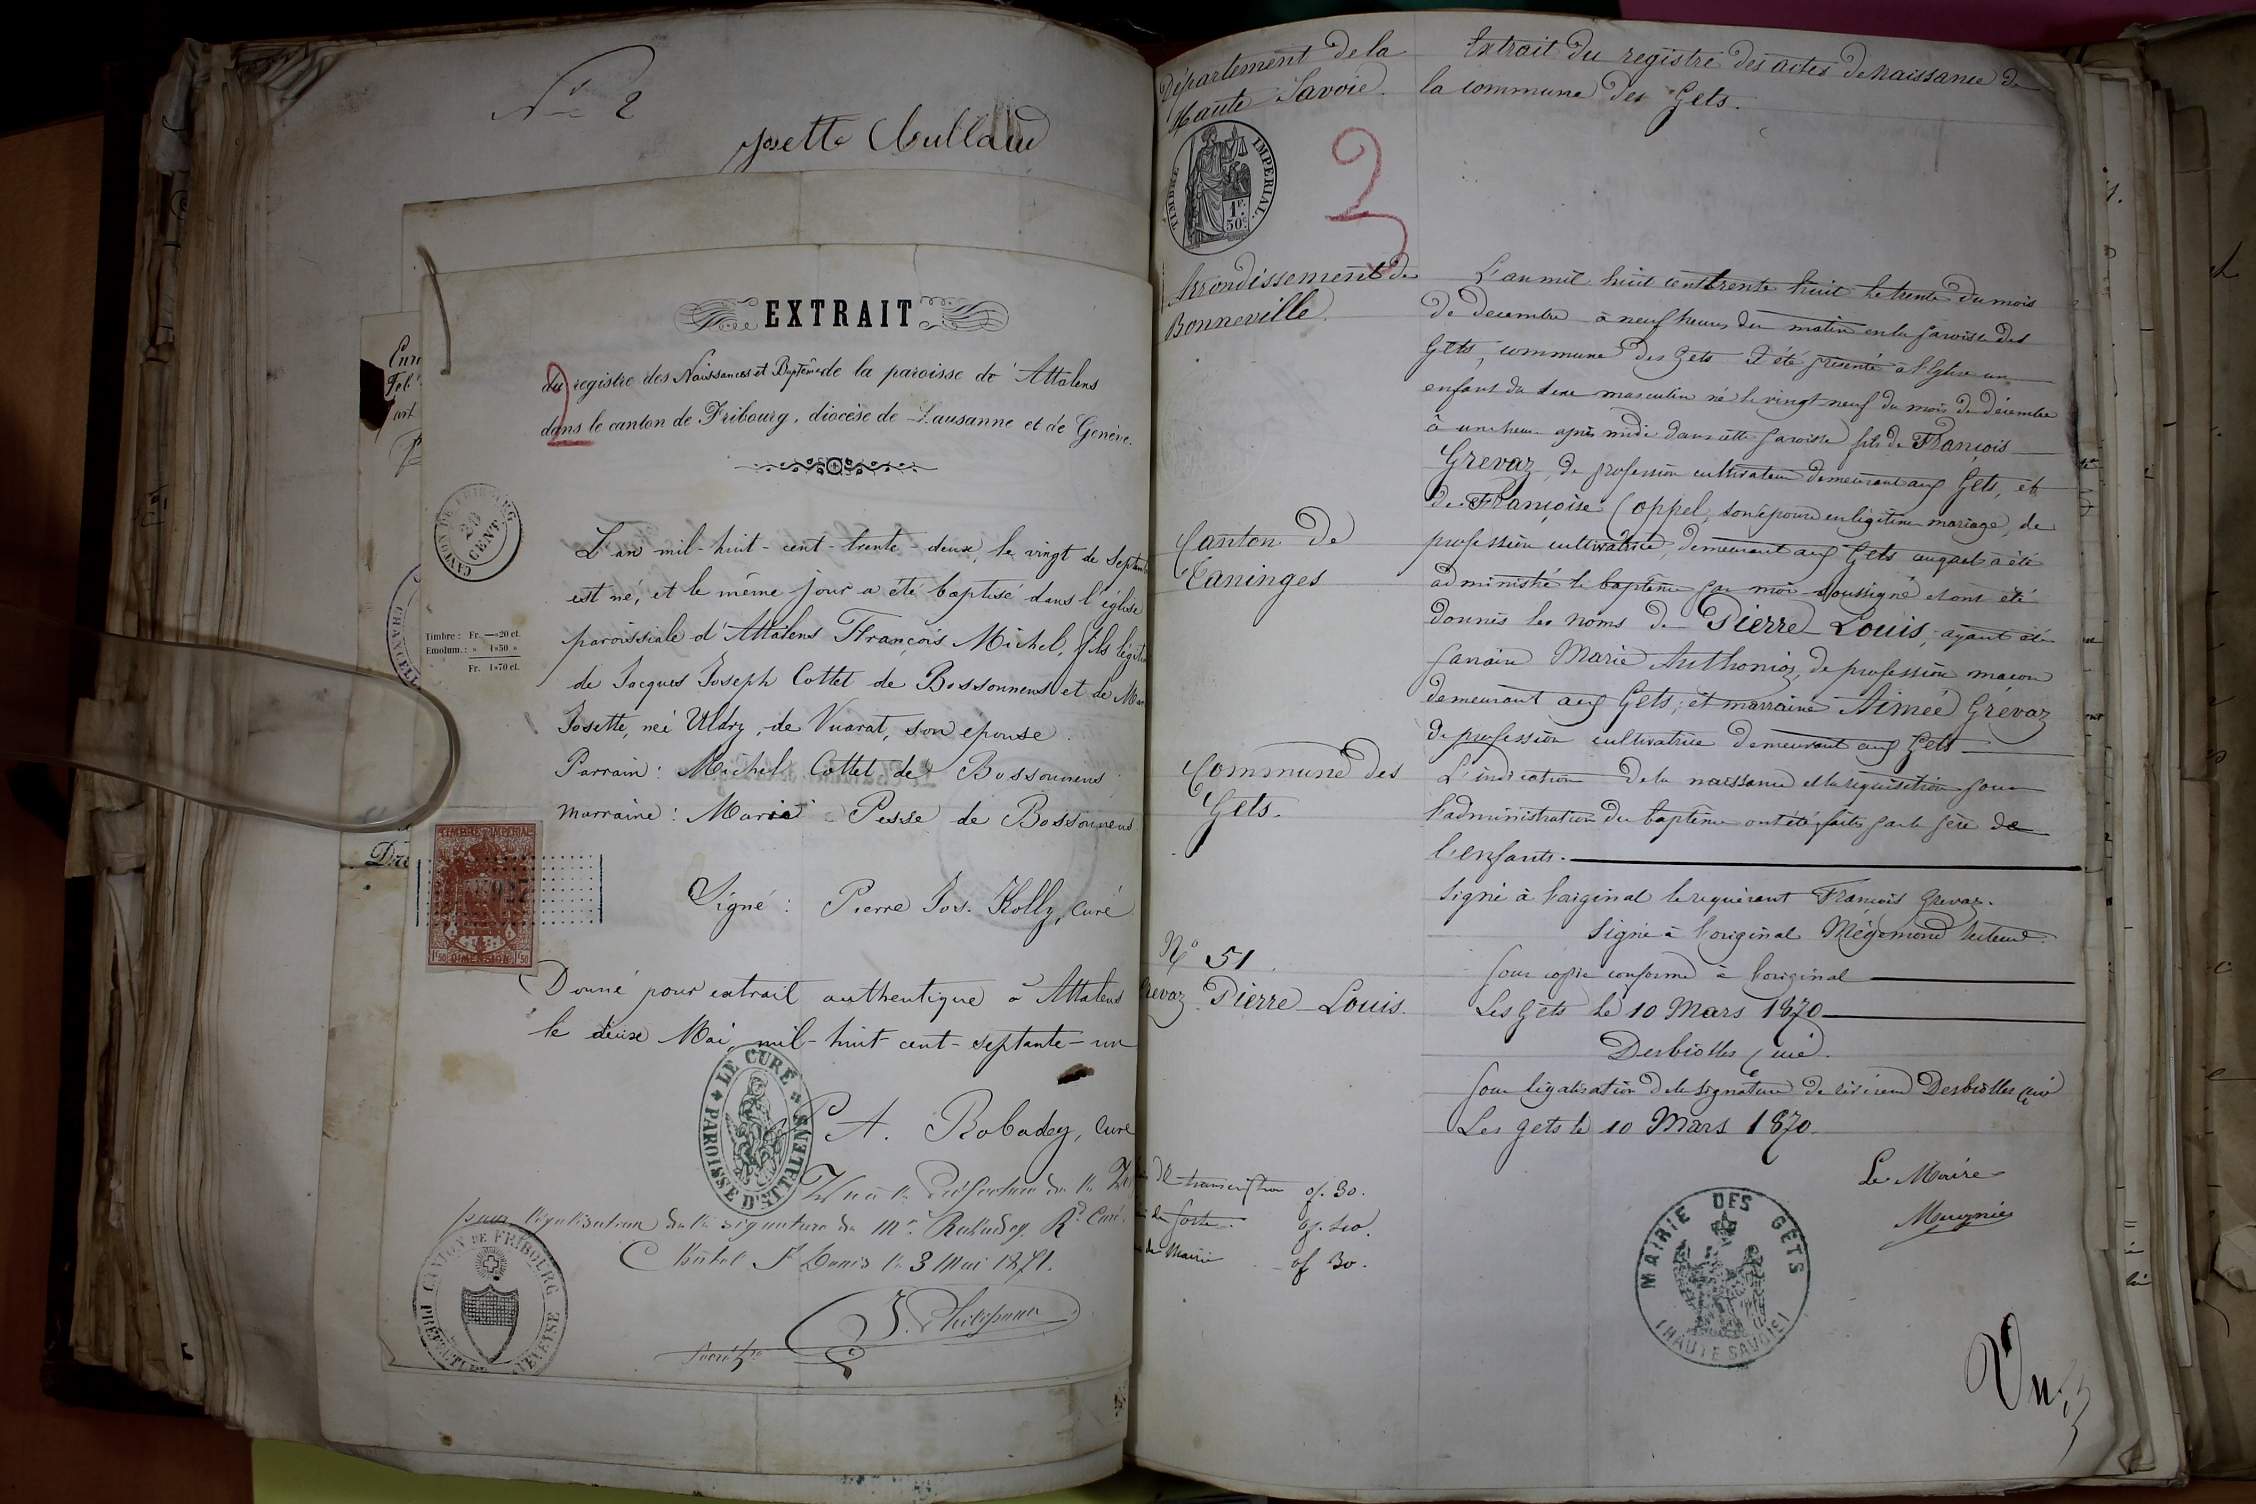 N° 2
Josette
EXTRAIT
du registre des Naissances et Baptême de la paroisse de Attalens
dans le canton de Fribourg, diocèse de Lausanne et de Genève.
CANTON DE FRIBOURG
20
CENT.
L'an mil-huit-cent-trente-deux, le vingt de Septemb
est né, et le même jour a été baptisé dans l'église
Timbre: Fr. —»20 ct.
Emolum.: » 1»50 »
Fr. 1»70 ct.
paroissiale d'Attalens François Michel, fils légit
de Jacques Joseph Cottet de Bossonnens et de Mar
Josette, née Uldry, de Vuarat, son epouse.
Parrain: Michel Cottet de Bossonnens
Marraine: Marie Pesse de Bossonnens
TIMBRE IMPÉRIAL
927
1F50 DIMENSION 1F50
Signé: Pierre Jos. Kolly, curé
Donné pour extrait authentique à Attalens
le deux Mai, mil-huit-cent-septante-un
LE CURÉ
PAROISSE D'ATTALENS
A. Robadey, curé
Vu à la Préfecture de la
pour légalisation de la signature de Mr. Robadey, Rd Curé.
Châtel St Denis le 3 Mai 1871.
CANTON DE FRIBOURG
Département de la
Haute Savoie.
Extrait du registre des actes de naissance de
la commune des Gets.
TIMBRE IMPÉRIAL.
1F.
50c
2
Arrondissement de
Bonneville.
L'an mil huit cent trente huit le trente du mois
de decembre à neuf heures du matin en la paroisse des
Gets, commune des Gets a été présenté à l'Eglise un
enfant du sexe masculin né le vingt-neuf du mois de décembre
à une heure après midi dans cette paroisse fils de François
Grevaz, de profession cultivateur demeurant aux Gets, et
de Françoise Coppel, son épouse en légitime mariage, de
Canton de
Taninges
profession cultivatrice, demeurant aux Gets auquel a été
administré le baptême par moi soussigné et ont été
donnés les noms de Pierre-Louis, ayant été
parrain Marie Anthonioz, de profession maçon
demeurant aux Gets; et marraine Aimée Grévaz
de profession cultivatrice demeurant aux Gets
Commune des
Gets.
L'indication de la naissance et la réquisition pour
l'administration du baptême ont été faites par le père de
l'enfants.
Signé à l'original le requérant François Grevaz.
Signé à l'original Mégemond Recteur.
N° 51
Grevaz Pierre-Louis.
Pour copie conforme à l'original
Les Gets le 10 Mars 1870
Desbiolles Curé.
Pour légalisation de la signature de révérend Desbiolles Curé
Les Gets le 10 Mars 1870.
de transcription of. 30.
of. 30.
Le Maire
MAIRIE DES GETS
(HAUTE SAVOIE)